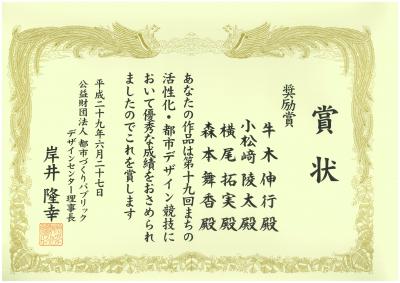 賞状
奨励賞
牛木伸行殿
小松﨑陵太殿
横尾拓実殿
森本舞香殿
あなたの作品は第十九回まちの
活性化・都市デザイン競技に
おいて優秀な成績をおさめられ
ましたのでこれを賞します
平成二十九年六月二十七日
公益財団法人都市づくりパブリック
デザインセンター理事長
岸井隆幸